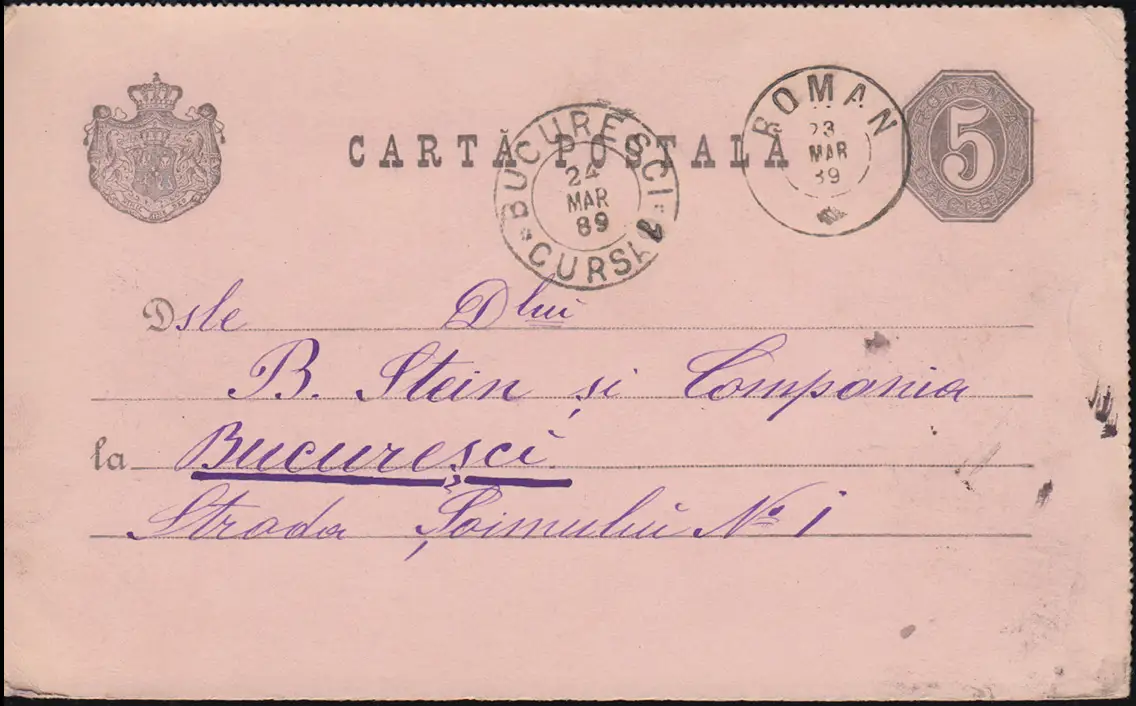 CARTĂ POSTALĂ
BUCURESCI
24
MAR
89
CURSA
ROMAN
23
MAR
89
ROMANIA
5
CINCI BANI
Dsle Dlui
B. Stein și Compania
la Bucuresci
Strada Șoimului No 1